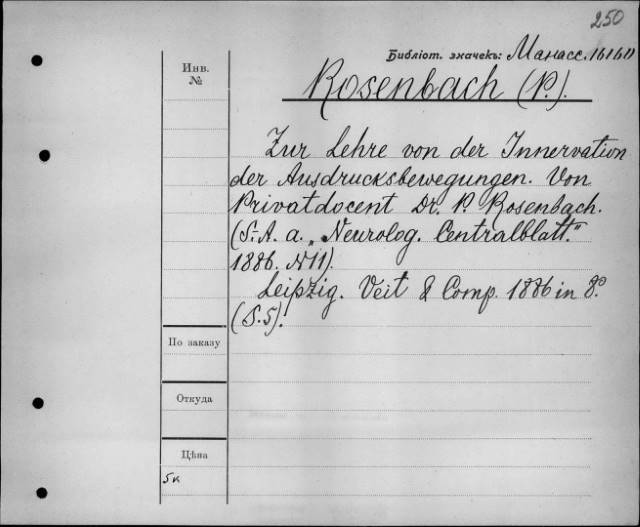 250
Библіот. значекъ: Манасс. 16160
Инв.
№
Rosenbach (P.).
Zur Lehre von der Innervation
der Ausdrucksbewegungen. Von
Privatdocent Dr. P. Rosenbach.
(S.-A. a. „Neurolog. Centralblatt."
1886. N11).
Leipzig. Veit & Comp. 1886 in 8º.
(S. 5).
По заказу
Откуда
Цѣна
5к